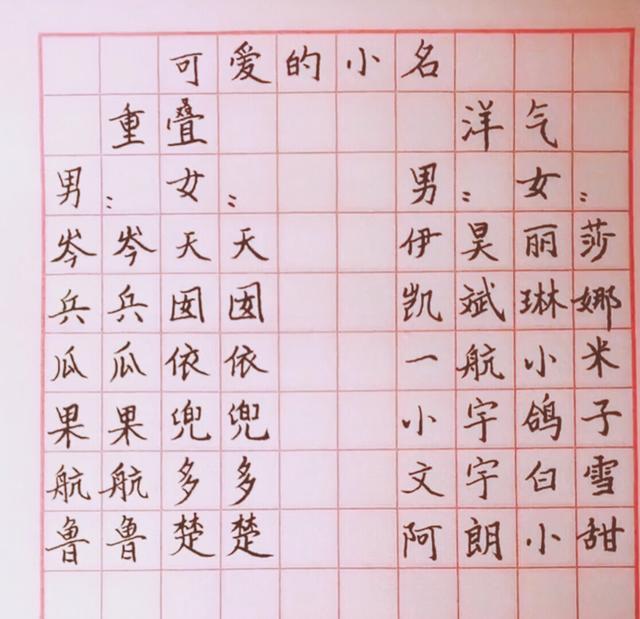 可爱的小名
重叠 洋气
男： 女： 男： 女：
岑岑 天天 伊昊 丽莎
兵兵 囡囡 凯斌 琳娜
瓜瓜 依依 一航 小米
果果 兜兜 小宇 鸽子
航航 多多 文宇 白雪
鲁鲁 楚楚 阿朗 小甜